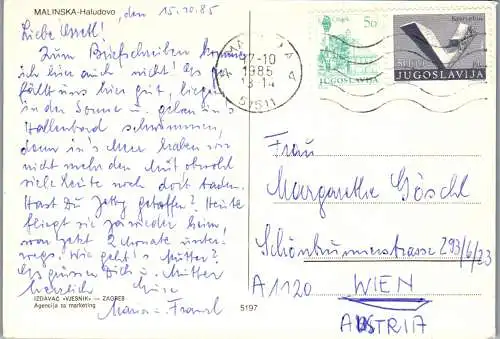 MALINSKA-Haludovo
, den 15.10.85
Liebe
Zum Briefschreiben komme
ich hier auch nicht! Es ge
fällt uns hier gut, liegen
in der Sonne u. gehen in's
Hallenbad schwimmen,
denn in's Meer haben wir
nicht mehr den Mut obwohl
viele Leute noch dort baden.
Hast Du Jetty getroffen? Heute
fliegt sie ja wieder heim,
war jetzt 2 Monate unter-
wegs. Wie geht's Mutter?
Es grüssen Dich u. Mutter
herzlich
u. Franzl
IZDAVAČ «VJESNIK» — ZAGREB
Agencija za marketing
5197
17-10
1985
13-14
51511
5,00
JUGOSLAVIJA
JUGOSLAVIJA
Frau
Margarethe Göschl
Schönbrunnerstrasse 293/6/23
A 1120 WIEN
AUSTRIA